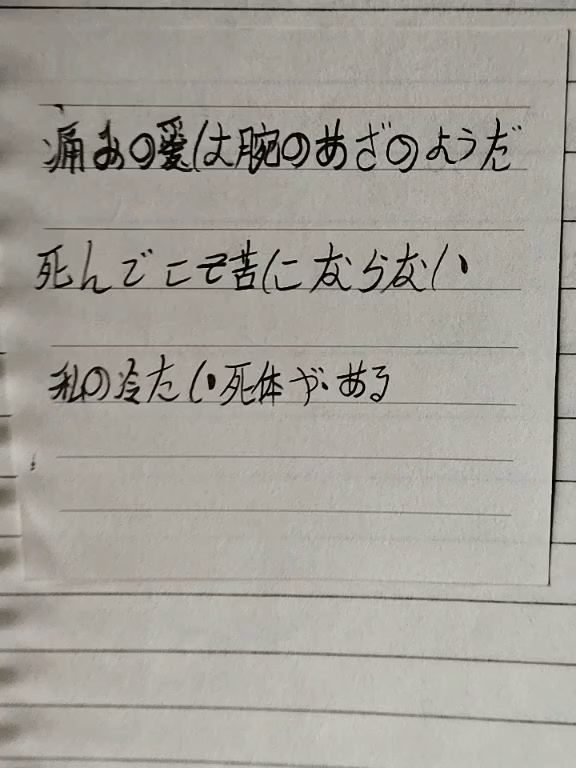 痛みの愛は腕のあざのようだ
死んでこそ苦にならない
私の冷たい死体がある